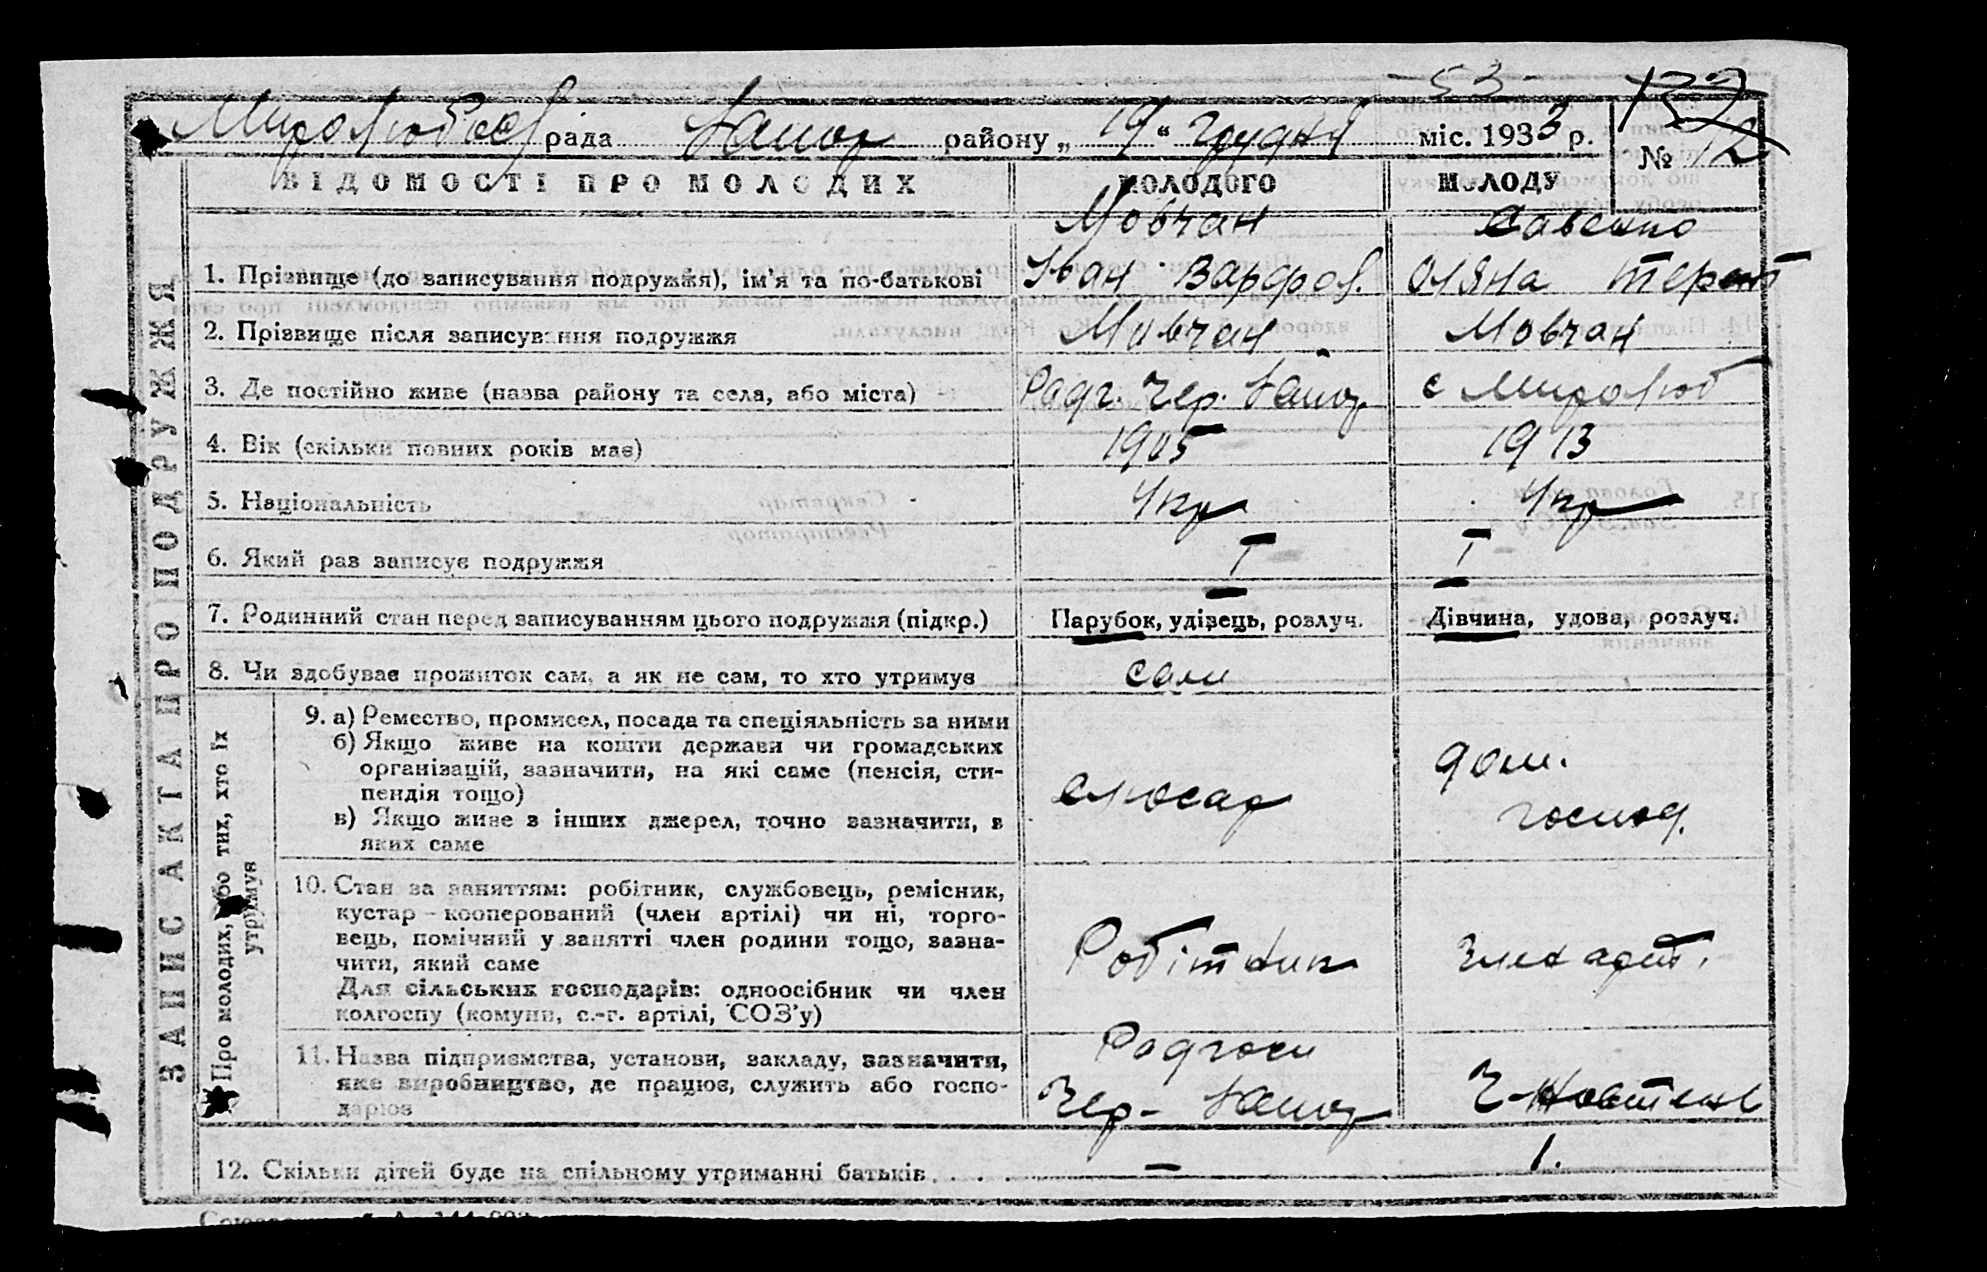 53
132
Миролюбов рада Запор району „ 19 “ грудня міс. 1933 р. № 12
ЗАПИС АКТА ПРО ПОДРУЖЖЯ
ВІДОМОСТІ ПРО МОЛОДИХ МОЛОДОГО МОЛОДУ
Мовчан Савенко
1. Прізвище (до записування подружжя), ім'я та по-батькові Іван Варфол. Оляна Терент
2. Прізвище після записування подружжя Мовчан Мовчан
3. Де постійно живе (назва району та села, або міста) Радг. Чер. Запор с Миролюб
4. Вік (скільки повних років має) 1905 1913
5. Національність Укр Укр
6. Який раз записує подружжя I I
7. Родинний стан перед записуванням цього подружжя (підкр.) Парубок, удівець, розлуч. Дівчина, удова, розлуч.
8. Чи здобуває прожиток сам, а як не сам, то хто утримує сам
Про молодих, або тих, хто їх утримує
9. а) Ремество, промисел, посада та спеціяльність за ними
б) Якщо живе на кошти держави чи громадських
організацій, зазначити, на які саме (пенсія, сти-
пендія тощо)
в) Якщо живе з інших джерел, точно зазначити, з
яких саме
слюсар
дом.
господ.
10. Стан за заняттям: робітник, службовець, ремісник,
кустар - кооперований (член артілі) чи ні, торго-
вець, помічний у занятті член родини тощо, зазна-
чити, який саме
Для сільських господарів: одноосібник чи член
колгоспу (комуни, с.-г. артілі, СОЗ'у)
Робітник
11. Назва підприємства, установи, закладу, зазначити,
яке виробництво, де працює, служить або госпо-
дарює
Радгосп
Чер- Запор
12. Скільки дітей буде на спільному утриманні батьків. . . . — 1.